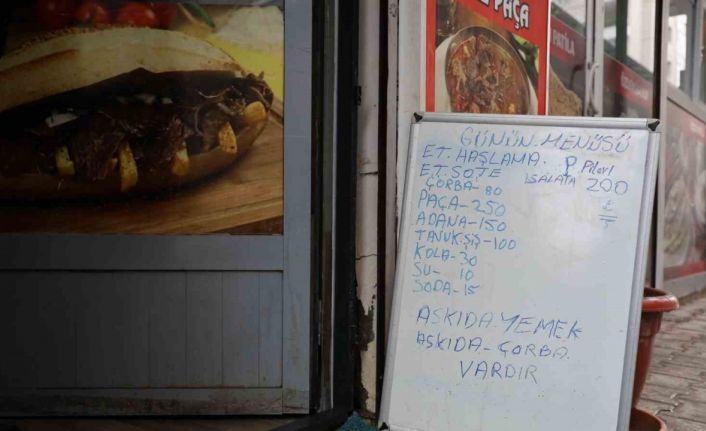 E PAÇA
PATİLA
GÜNÜN MENÜSÜ
ET. HAŞLAMA.
ET. SOTE
P. Pilavı
SALATA 200
₺
ÇORBA- 80
PAÇA- 250
ADANA-150
TAVUK ŞİŞ-100
KOLA-30
SU- 10
SODA-15
ASKIDA YEMEK
ASKIDA - ÇORBA.
VARDIR